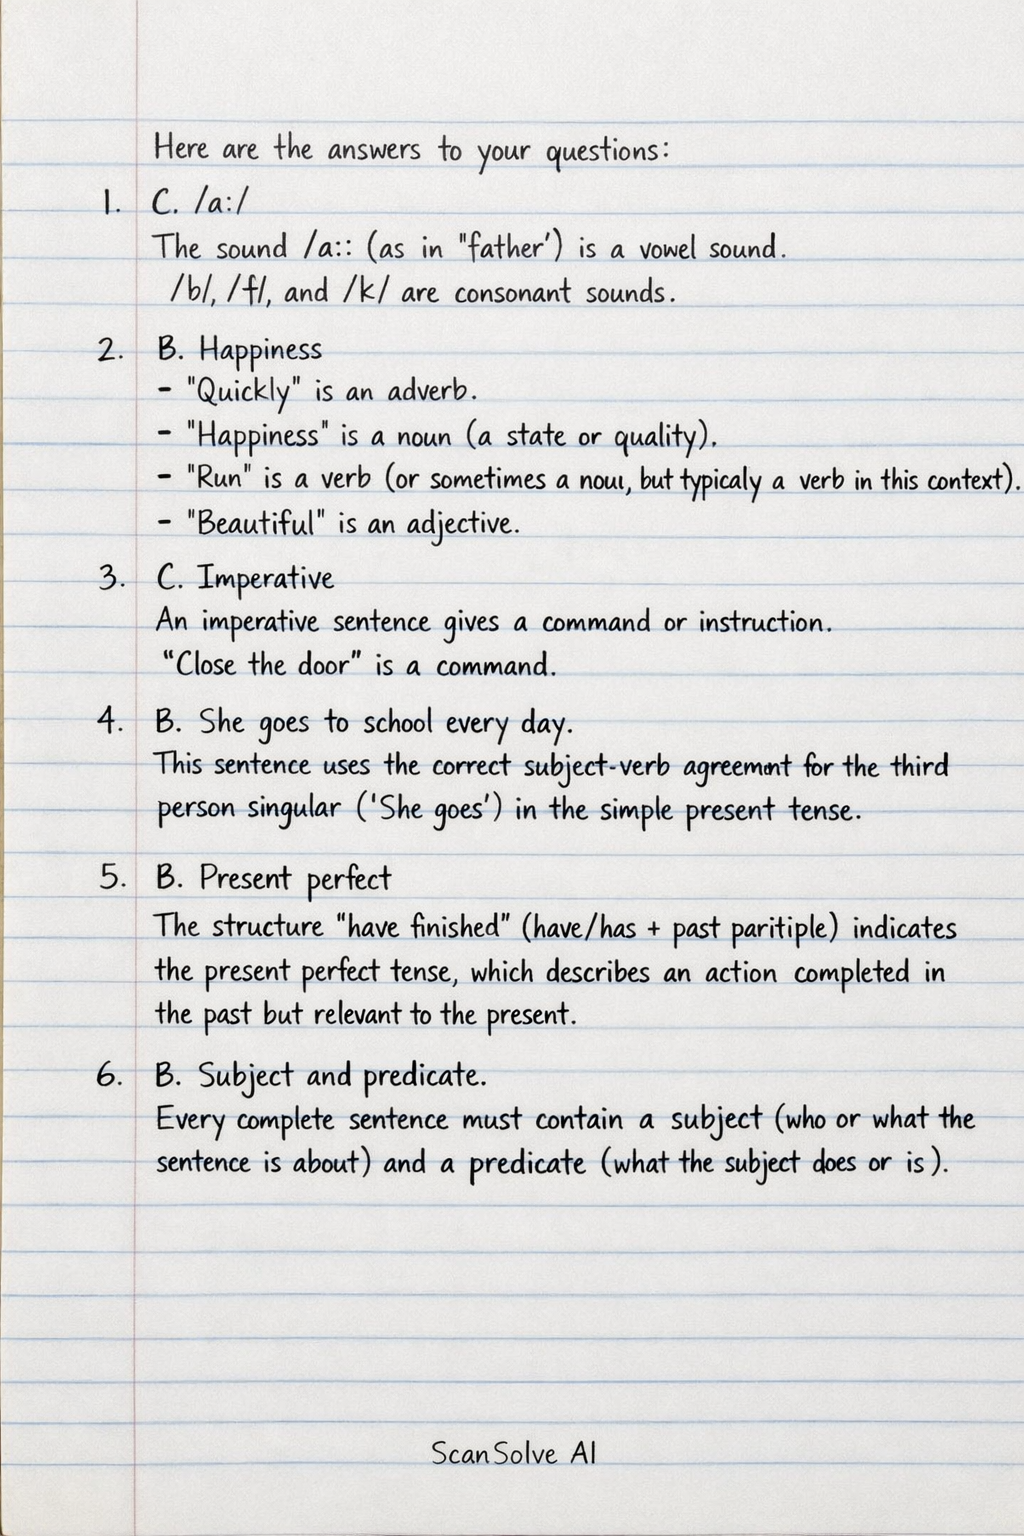 Here are the answers to your questions:
1. C. /a:/
The sound /a:: (as in "father') is a vowel sound.
/b/, /f/, and /k/ are consonant sounds.
2. B. Happiness
- "Quickly" is an adverb.
- "Happiness" is a noun (a state or quality).
- "Run" is a verb (or sometimes a nouı, but typicaly a verb in this context).
- "Beautiful" is an adjective.
3. C. Imperative
An imperative sentence gives a command or instruction.
"Close the door" is a command.
4. B. She goes to school every day.
This sentence uses the correct subject-verb for the third
person singular ('She goes') in the simple present tense.
5. B. Present perfect
The structure "have finished" (have/has + past paritiple) indicates
the present perfect tense, which describes an action completed in
the past but relevant to the present.
6. B. Subject and predicate.
Every complete sentence must contain a subject (who or what the
sentence is about) and a predicate (what the subject does or is).
ScanSolve AI